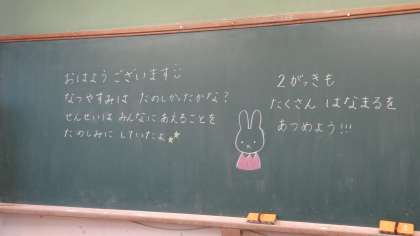 おはようございます
なつやすみは たのしかったかな?
せんせいは みんなに あえることを
たのしみに していたよ
2がっきも
たくさん はなまるを
あつめよう!!!